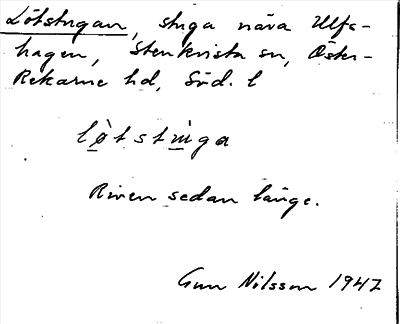 Lötstugan, stuga nära Ulfs-
hagen, Stenkvista sn, Öster-
Rekarne hd, Söd. l
lø̀tstu̇ga
Riven sedan länge.
Gun Nilsson 1947